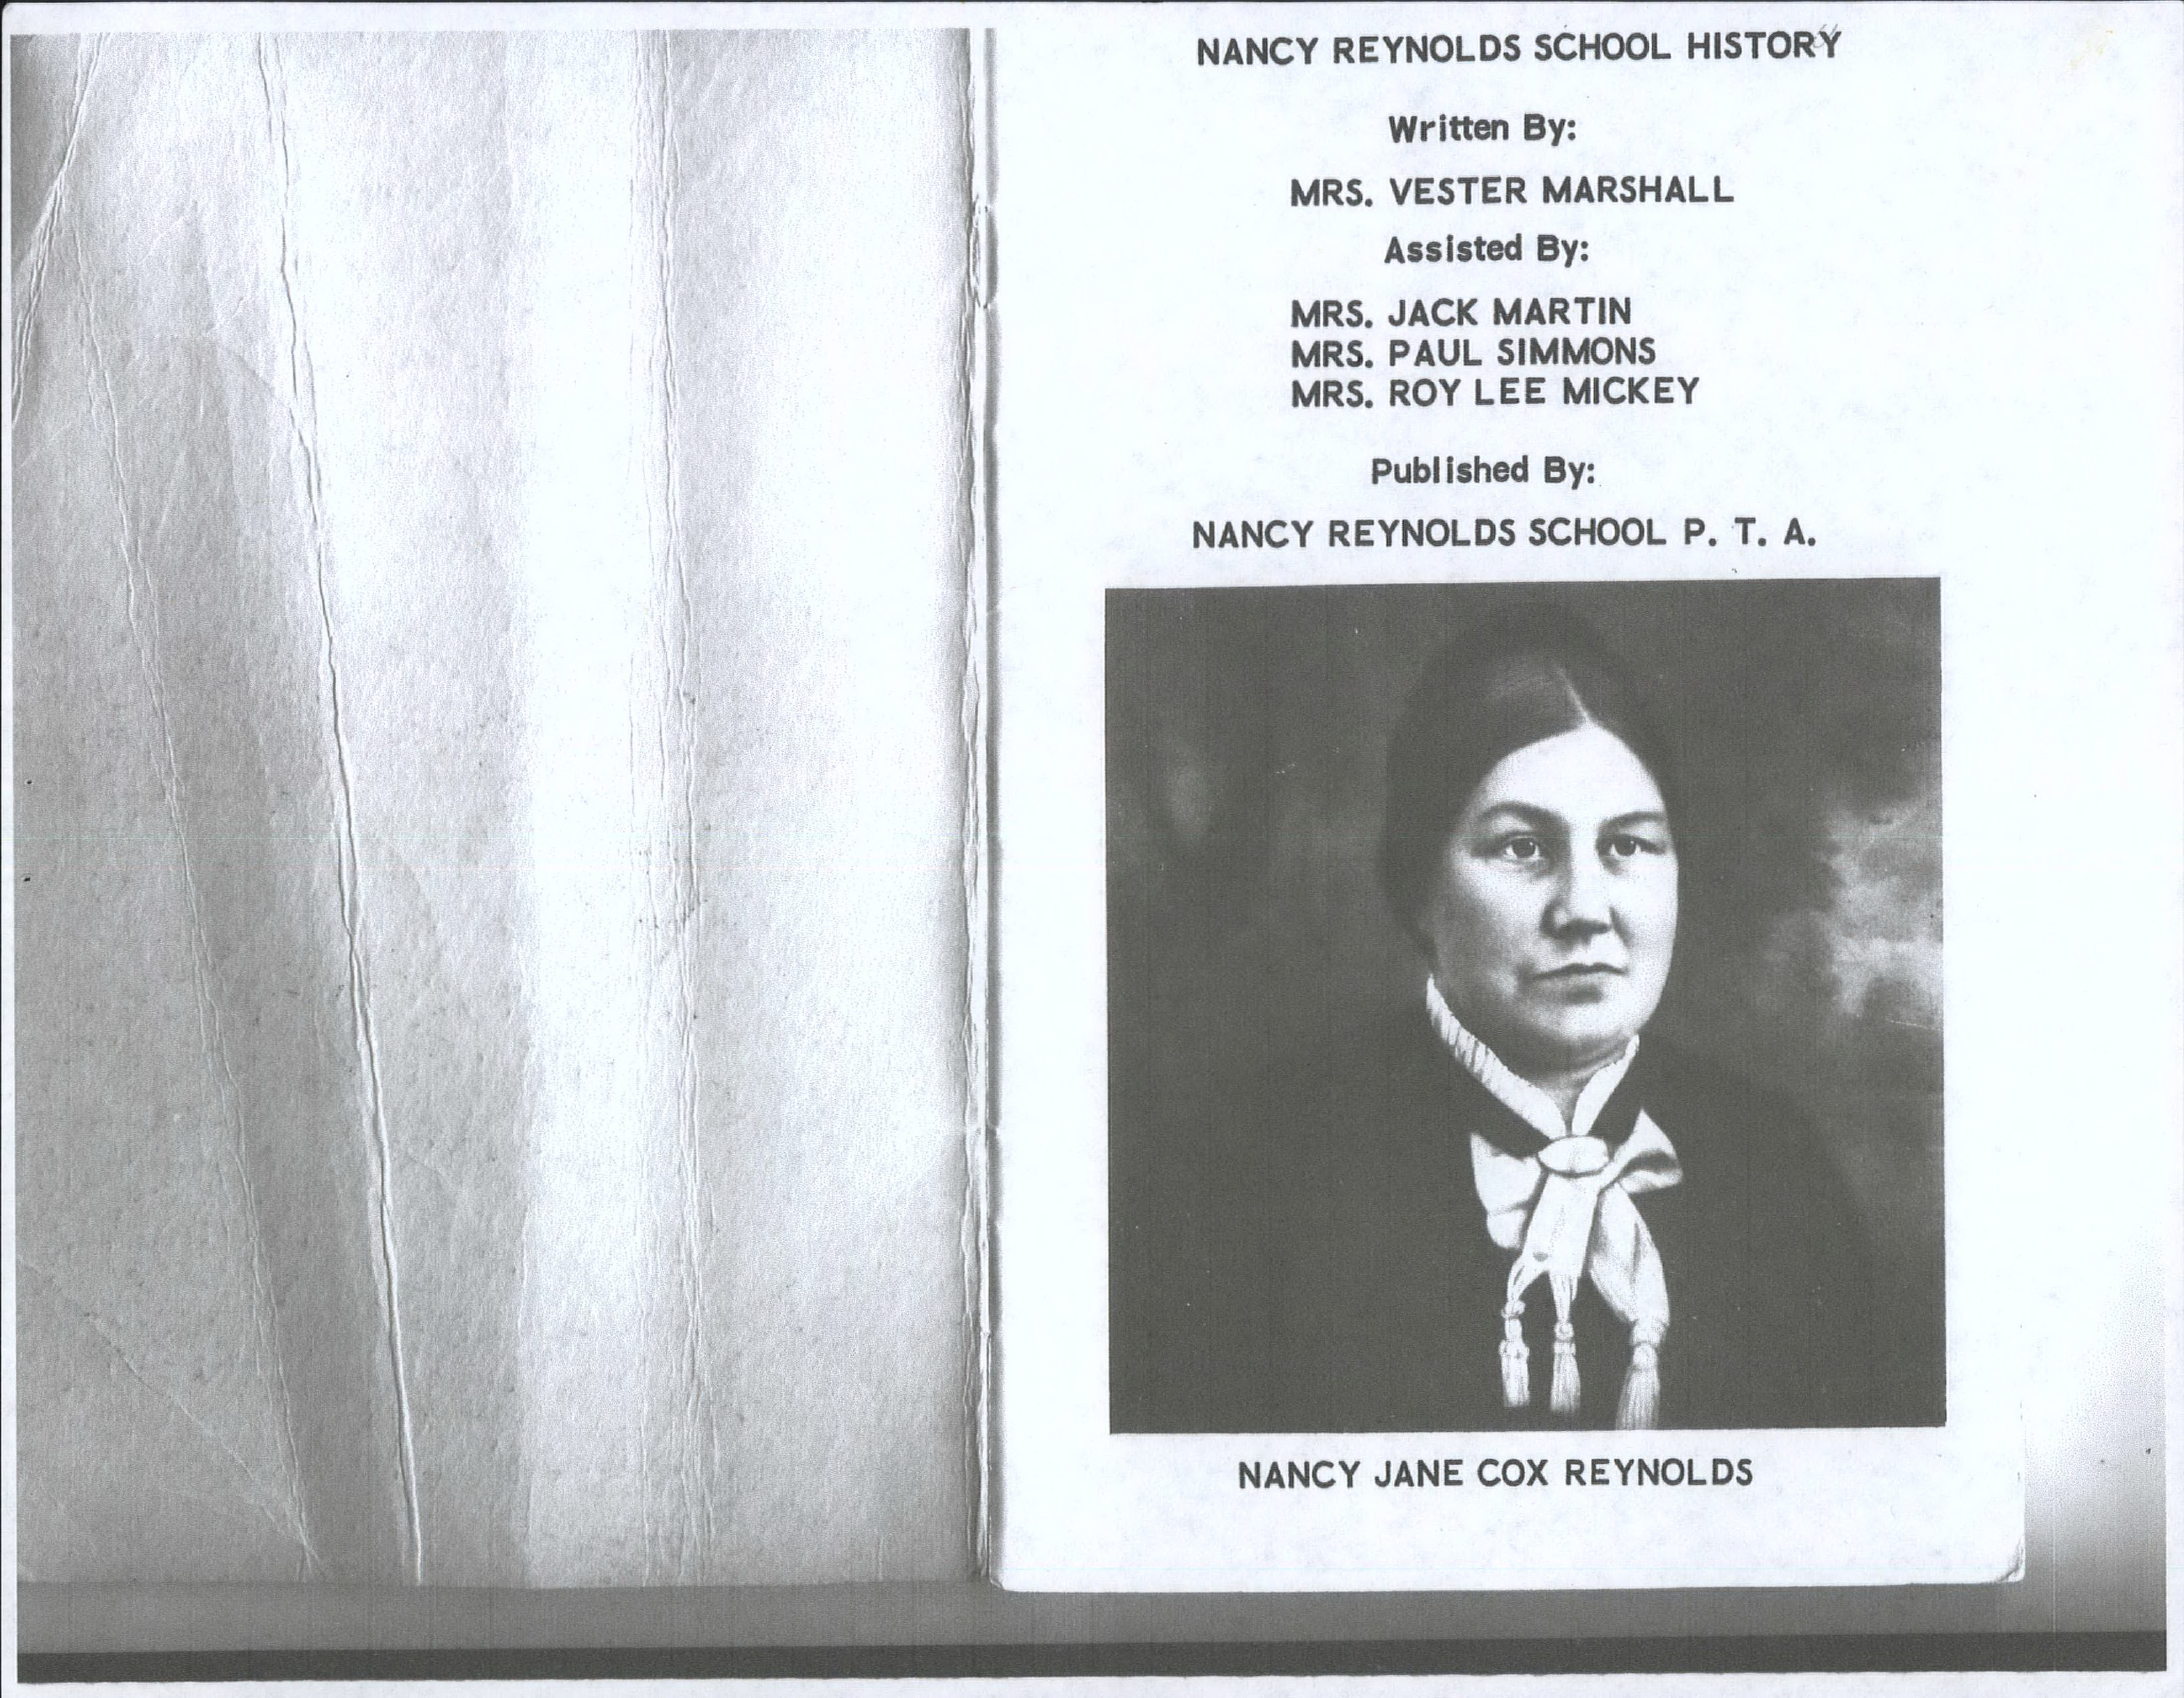 NANCY REYNOLDS SCHOOL HISTORY
Written By:
MRS. VESTER MARSHALL
Assisted By:
MRS. JACK MARTIN
MRS. PAUL SIMMONS
MRS. ROY LEE MICKEY
Published By:
NANCY REYNOLDS SCHOOL P. T. A.
NANCY JANE COX REYNOLDS